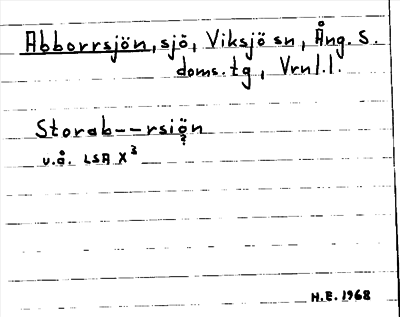 Abborrsjön, sjö, Viksjö sn, Ång. S.
doms. tg, Vrnl.l.
Storab--rsiön
?
u.å. LSA X³
H.E. 1968